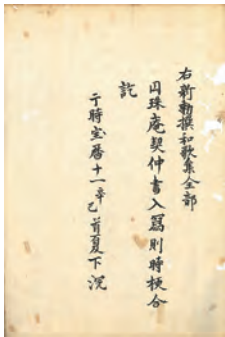 右新勅撰和歌集全部
円珠庵契仲書入寫則時校合
訖
于時宝暦十一辛巳首夏下浣